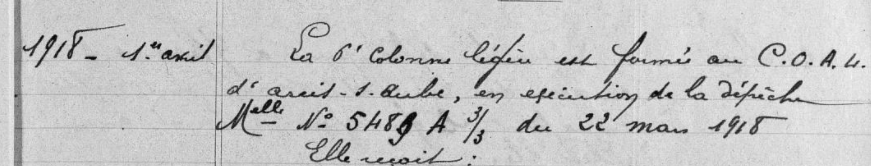 1918 - 1er avril La 6e colonne légère est formée au C.O.A.L.
d'arcis-s-aube, en exécution de la dépêche
Melle No 5489 A 3/3 du 22 mars 1918
Elle reçoit :